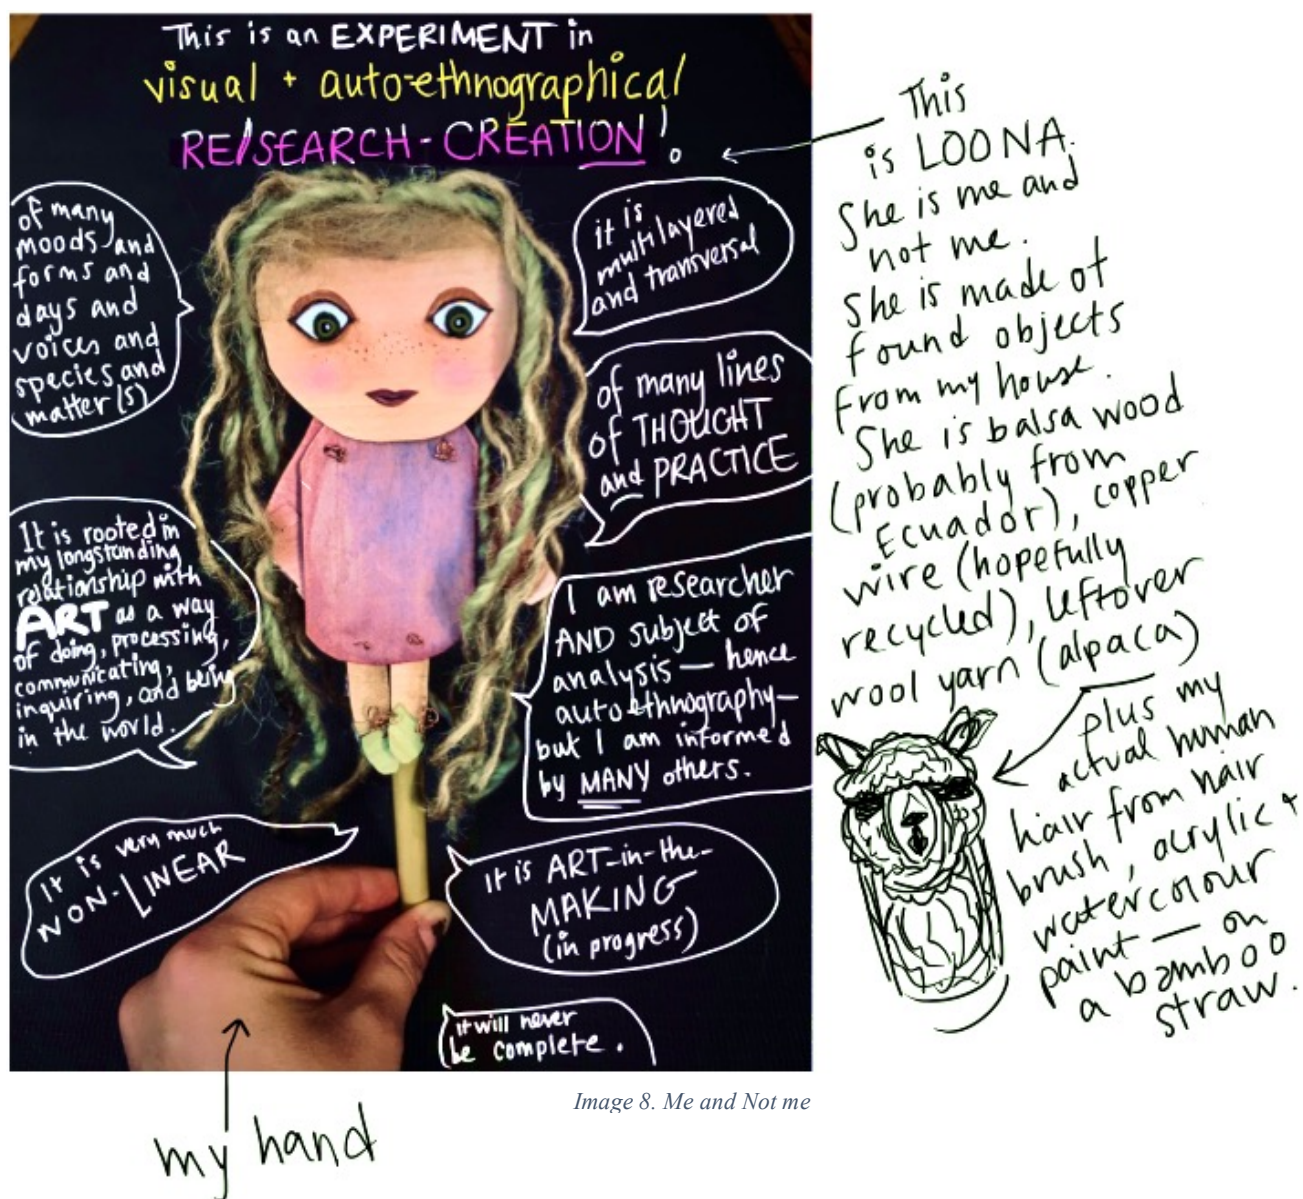 This is an EXPERIMENT in
visual + auto-ethnographical
RE/SEARCH-CREATION!
of many
moods and
forms and
days and
voices and
species and
matter(s)
it is
multilayered
and transversal
of many lines
of THOUGHT
and PRACTICE
It is rooted in
my longstanding
relationship with
ART as a way
of doing, processing,
communicating,
inquiring, and being
in the world.
I am researcher
AND subject of
analysis — hence
autoethnography —
but I am informed
by MANY others.
It is very much
NON-LINEAR
It is ART-in-the-
MAKING
(in progress)
it will never
be complete.
This
is LOONA.
She is me and
not me.
She is made of
found objects
from my house.
She is balsa wood
(probably from
Ecuador), copper
wire (hopefully
recycled), leftover
wool yarn (alpaca)
plus my
actual human
hair from hair
brush, acrylic +
watercolour
paint — on
a bamboo
straw.
Image 8. Me and Not me
my hand